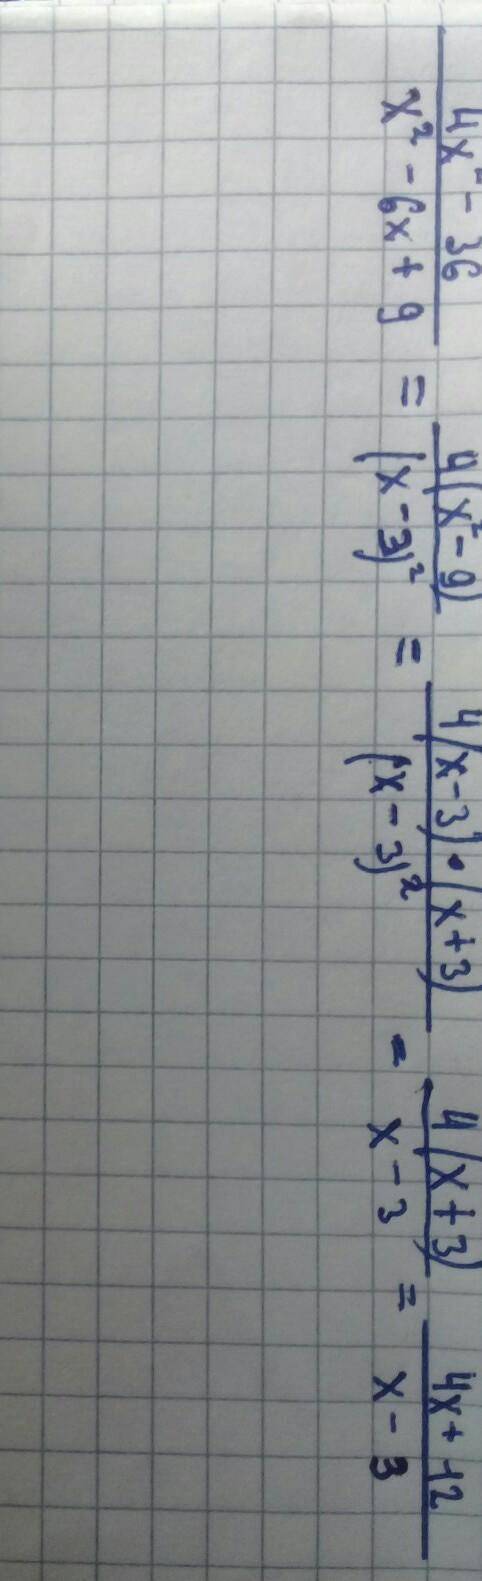 4x² - 36 / x² - 6x + 9 = 4(x² - 9) / (x - 3)² = 4(x - 3) • (x + 3) / (x - 3)² = 4(x + 3) / x - 3 = 4x + 12 / x - 3